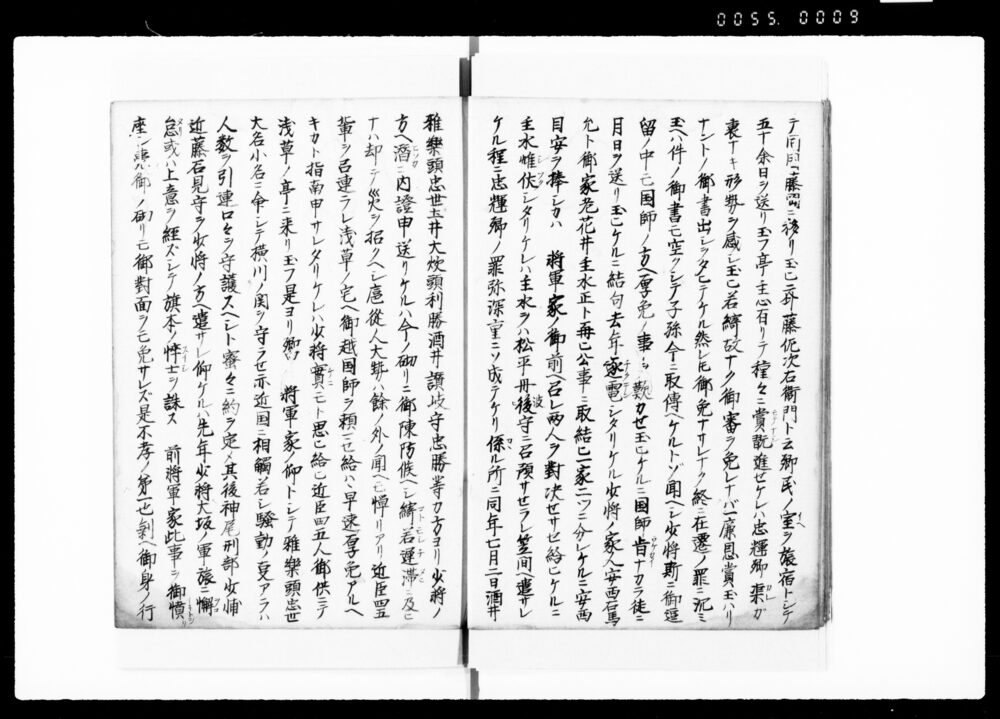 0055.0009
テ同国藤岡ニ移リ玉ヒニ斗藤佐次右衛門ト云郷民ノ室ヲ旅宿トシテ
五十余日ヲ送リ玉フ亭主心有リテ種々ニ賞翫進セケレハ忠輝卿渠カ
衷ナキ形勢ヲ感シ玉ヒ若綺故ナク御審ヲ免レナバ一廉恩賞玉ハリ
ナントノ御書出シヲタヒテケル然レ𪜈御免ナサレナク終ニ在遷ノ罪ニ沉ミ
玉ヘハ件ノ御書モ空クシテ子孫今ニ取傳ヘケルトゾ聞ヘシ少将斯ニ御逗
留ノ中モ国師ノ方ヘ厚免ノ事ヲ歎カセ玉ヒケルニ国師肯ナカラ徒ニ
月日ヲ送リ玉ヒケルニ結句去年逐電シタリケル少将ノ家人安西右馬
允ト御家老花井主水正ト再ヒ公事ニ取結ヒ一家二ツニ分レケルニ安西
目安ヲ捧シカハ 将軍家ノ御前ヘ召レ両人ヲ對决サセ給ヒケルニ
主水雌伏シタリケレハ主水ヲハ松平丹後守ニ召預サセラレ笠間ヘ遣サレ
ケル程ニ忠輝卿ノ罪弥深重ニソ成テケリ係ル所ニ同年七月二日酒井
雅樂頭忠世土井大炊頭利勝酒井讃岐守忠勝等カ方ヨリ少将ノ
方ヘ潜ニ内證申送リケルハ今ノ砌リニ御陳防候ヘシ綺若遅滞ニ及ヒ
ナハ却テ災ヲ招クヘシ扈從人大勢ハ餘ノ外ノ聞ヘモ憚リアリ近臣四五
輩ヲ召連ラレ浅草ノ宅ヘ御越国師ヲ頼ニセ給ハ早速厚免アルヘ
キカト指南申サレタリケレハ少将實モト思ヒ給ヒ近臣四五人御供ニテ
浅草ノ亭ニ来リ玉フ是ヨリ郷 将軍家ノ仰トシテ雅樂頭忠世
大名小名ニ命シテ横川ノ関ヲ守ラせ亦近国ニ相觸若シ騒動ノ㕝アラハ
人数ヲ引連口々ヲ守護スヘシト蜜々ニ約ヲ定メ其後神尾刑部少輔
近藤石見守ヲ少将ノ方ヘ遣サレ仰ケルハ先年少将大坂ノ軍旅ニ懈
怠或ハ上意ヲ経ズシテ旗本ノ倅士ヲ誅ス 前将軍家此事ヲ御憤
座シ薨御ノ砌リモ御對面ヲモ免サレズ是不孝ノ第一也剰ヘ御身ノ行